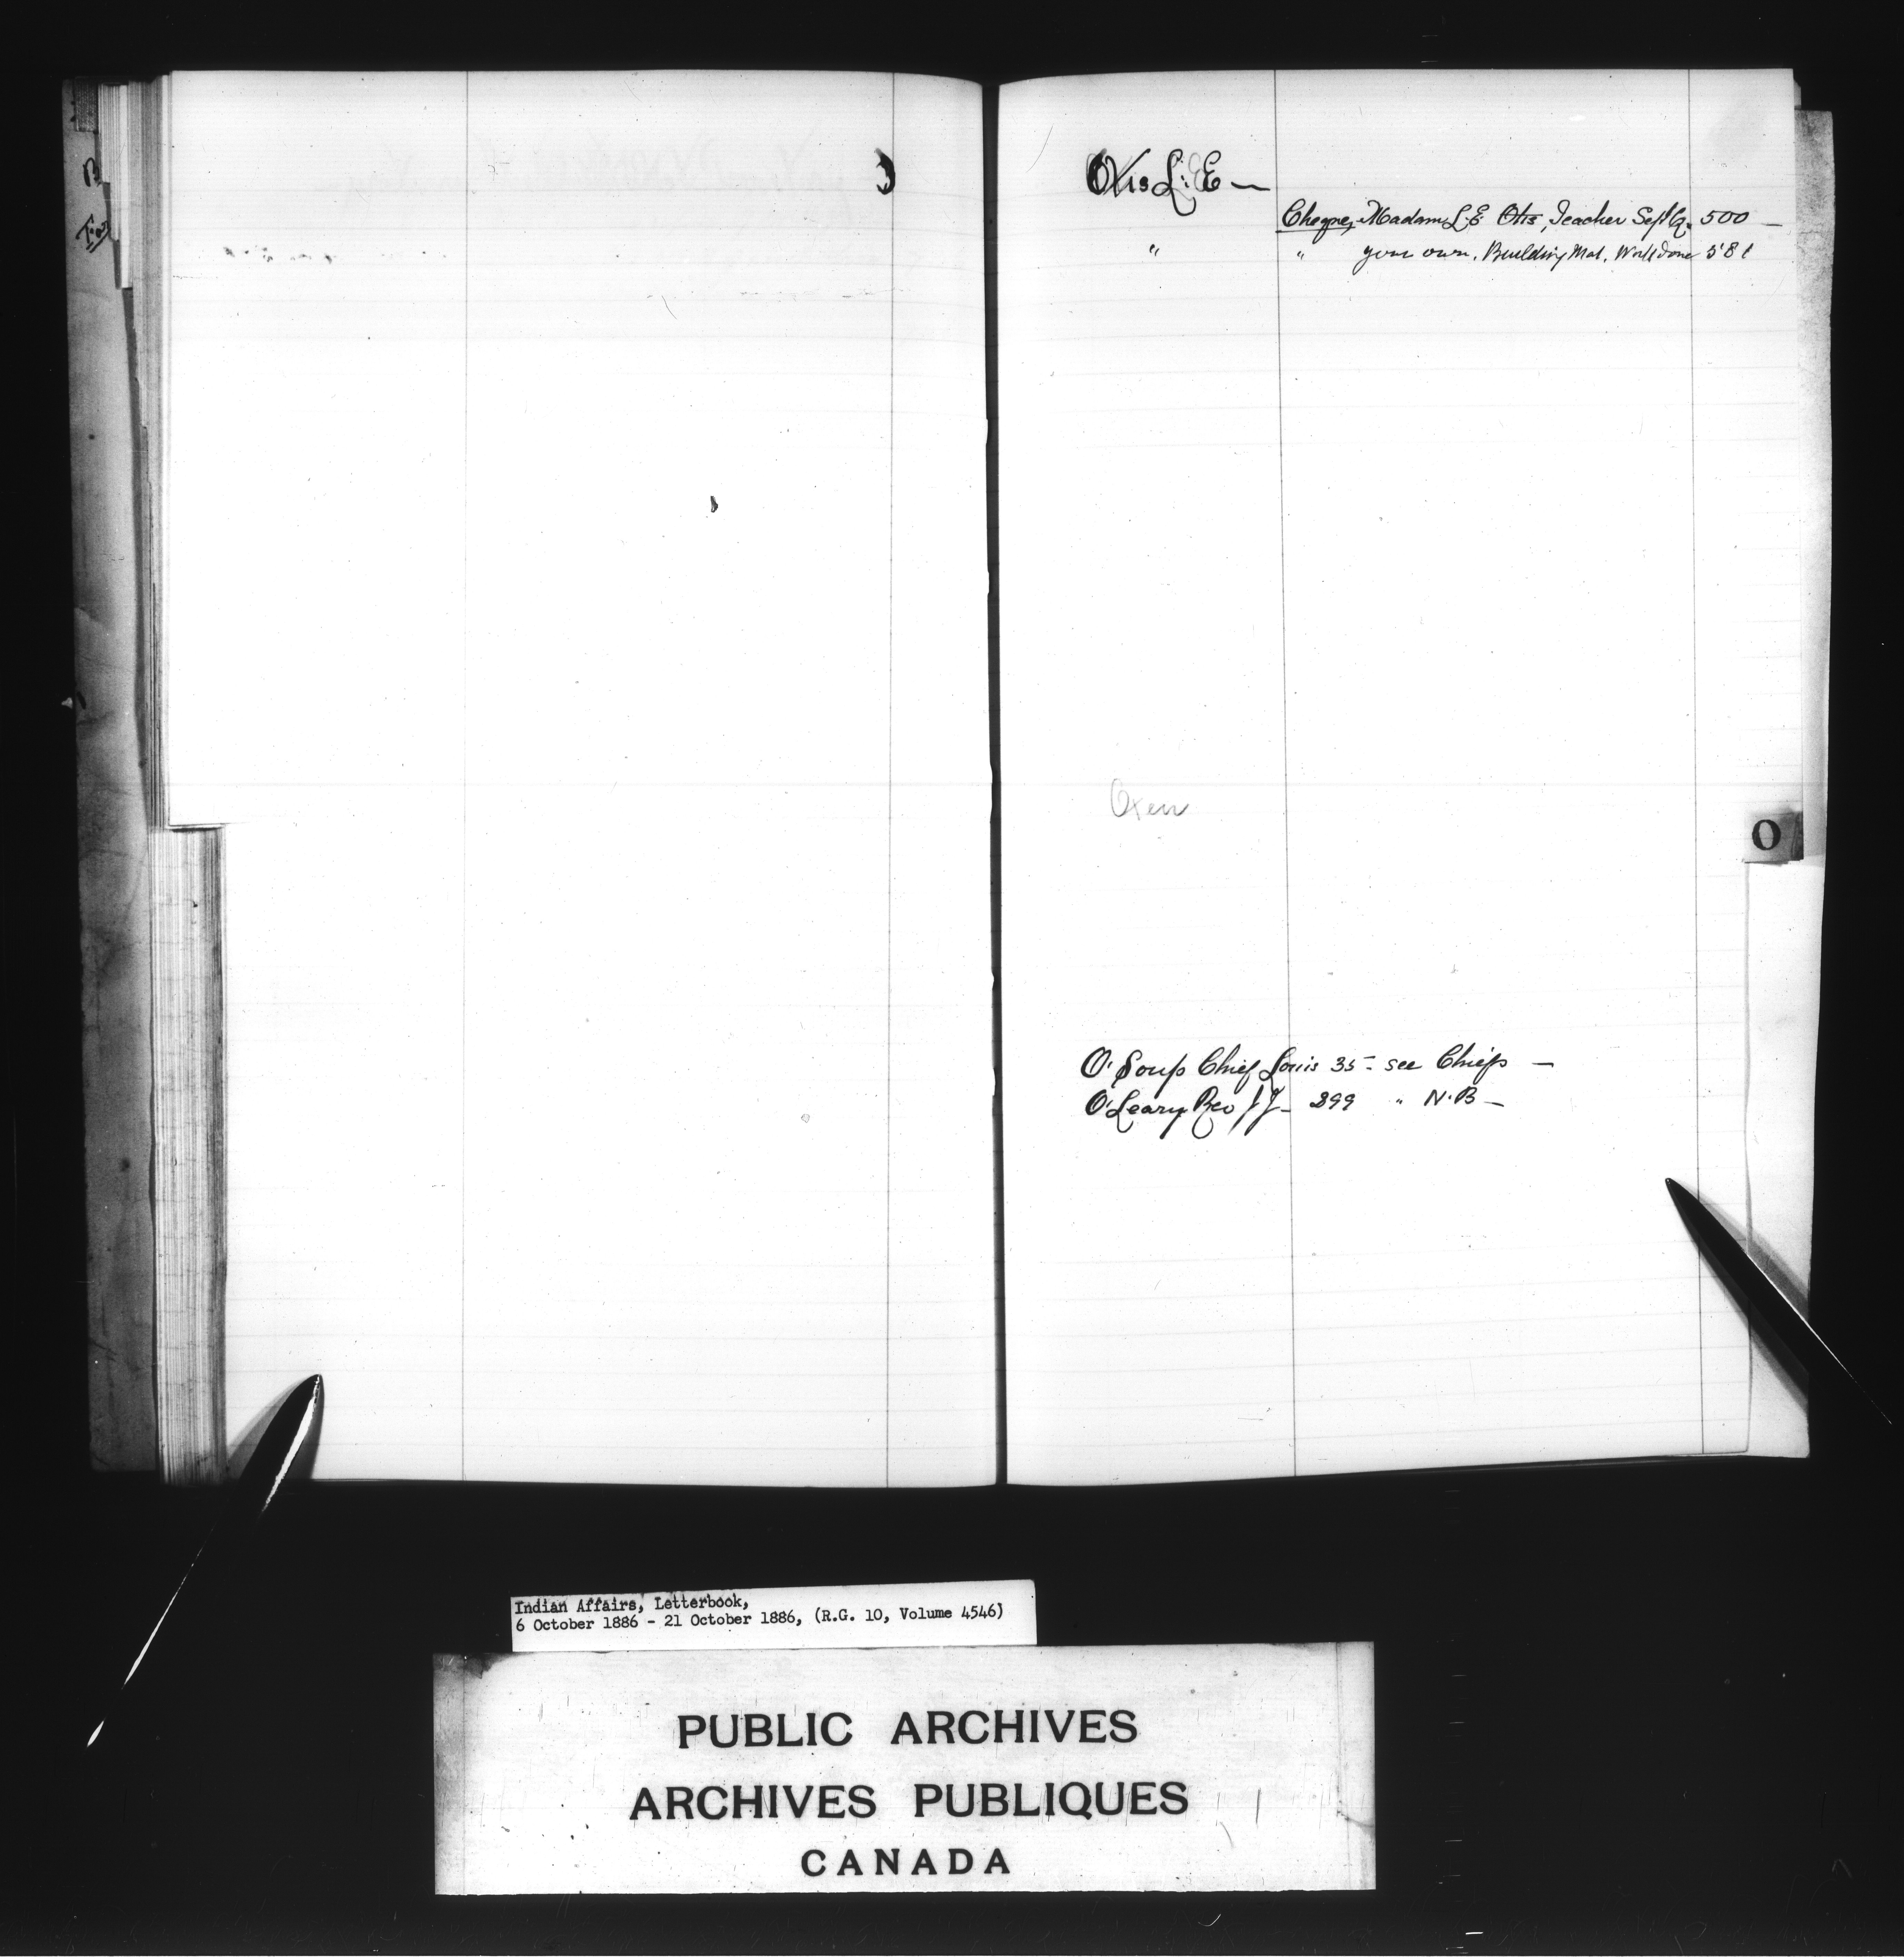 Otis L. E —
Cheque, Madam L. E Otis, Teacher Sept Q. 500 —
" " your own. Building Mat. Work done 581
Oxen
O
O'Soup Chief Louis 35 - see Chiefs —
O'Leary Rev J J — 299 " N.B —
Indian Affairs, Letterbook,
6 October 1886 - 21 October 1886, (R.G. 10, Volume 4546)
PUBLIC ARCHIVES
ARCHIVES PUBLIQUES
CANADA